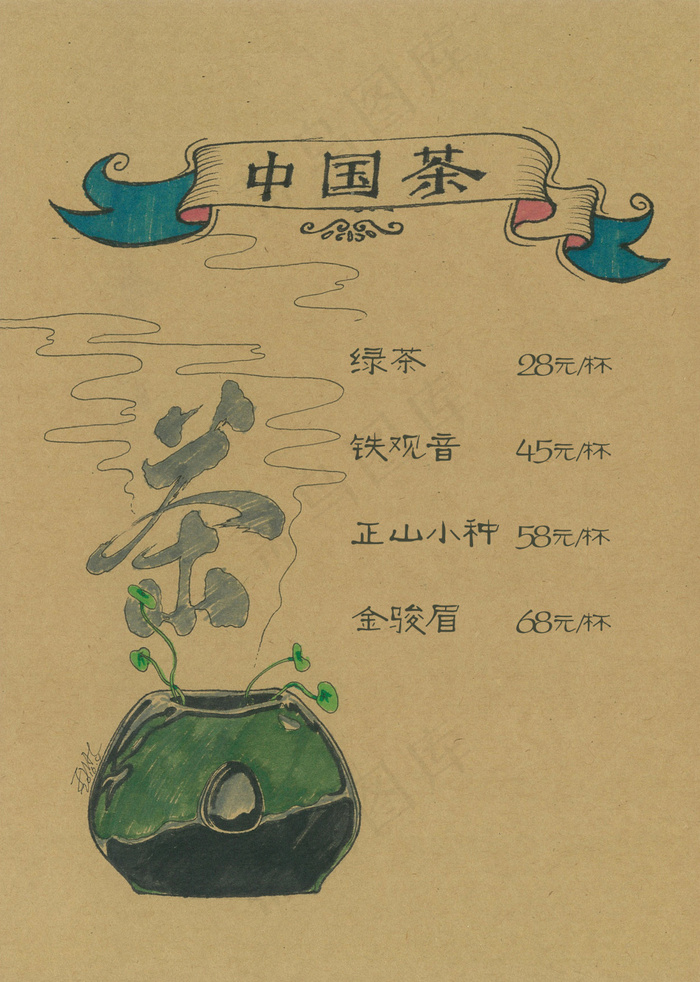 中国茶
绿茶 28元/杯
铁观音 45元/杯
正山小种 58元/杯
金骏眉 68元/杯
茶